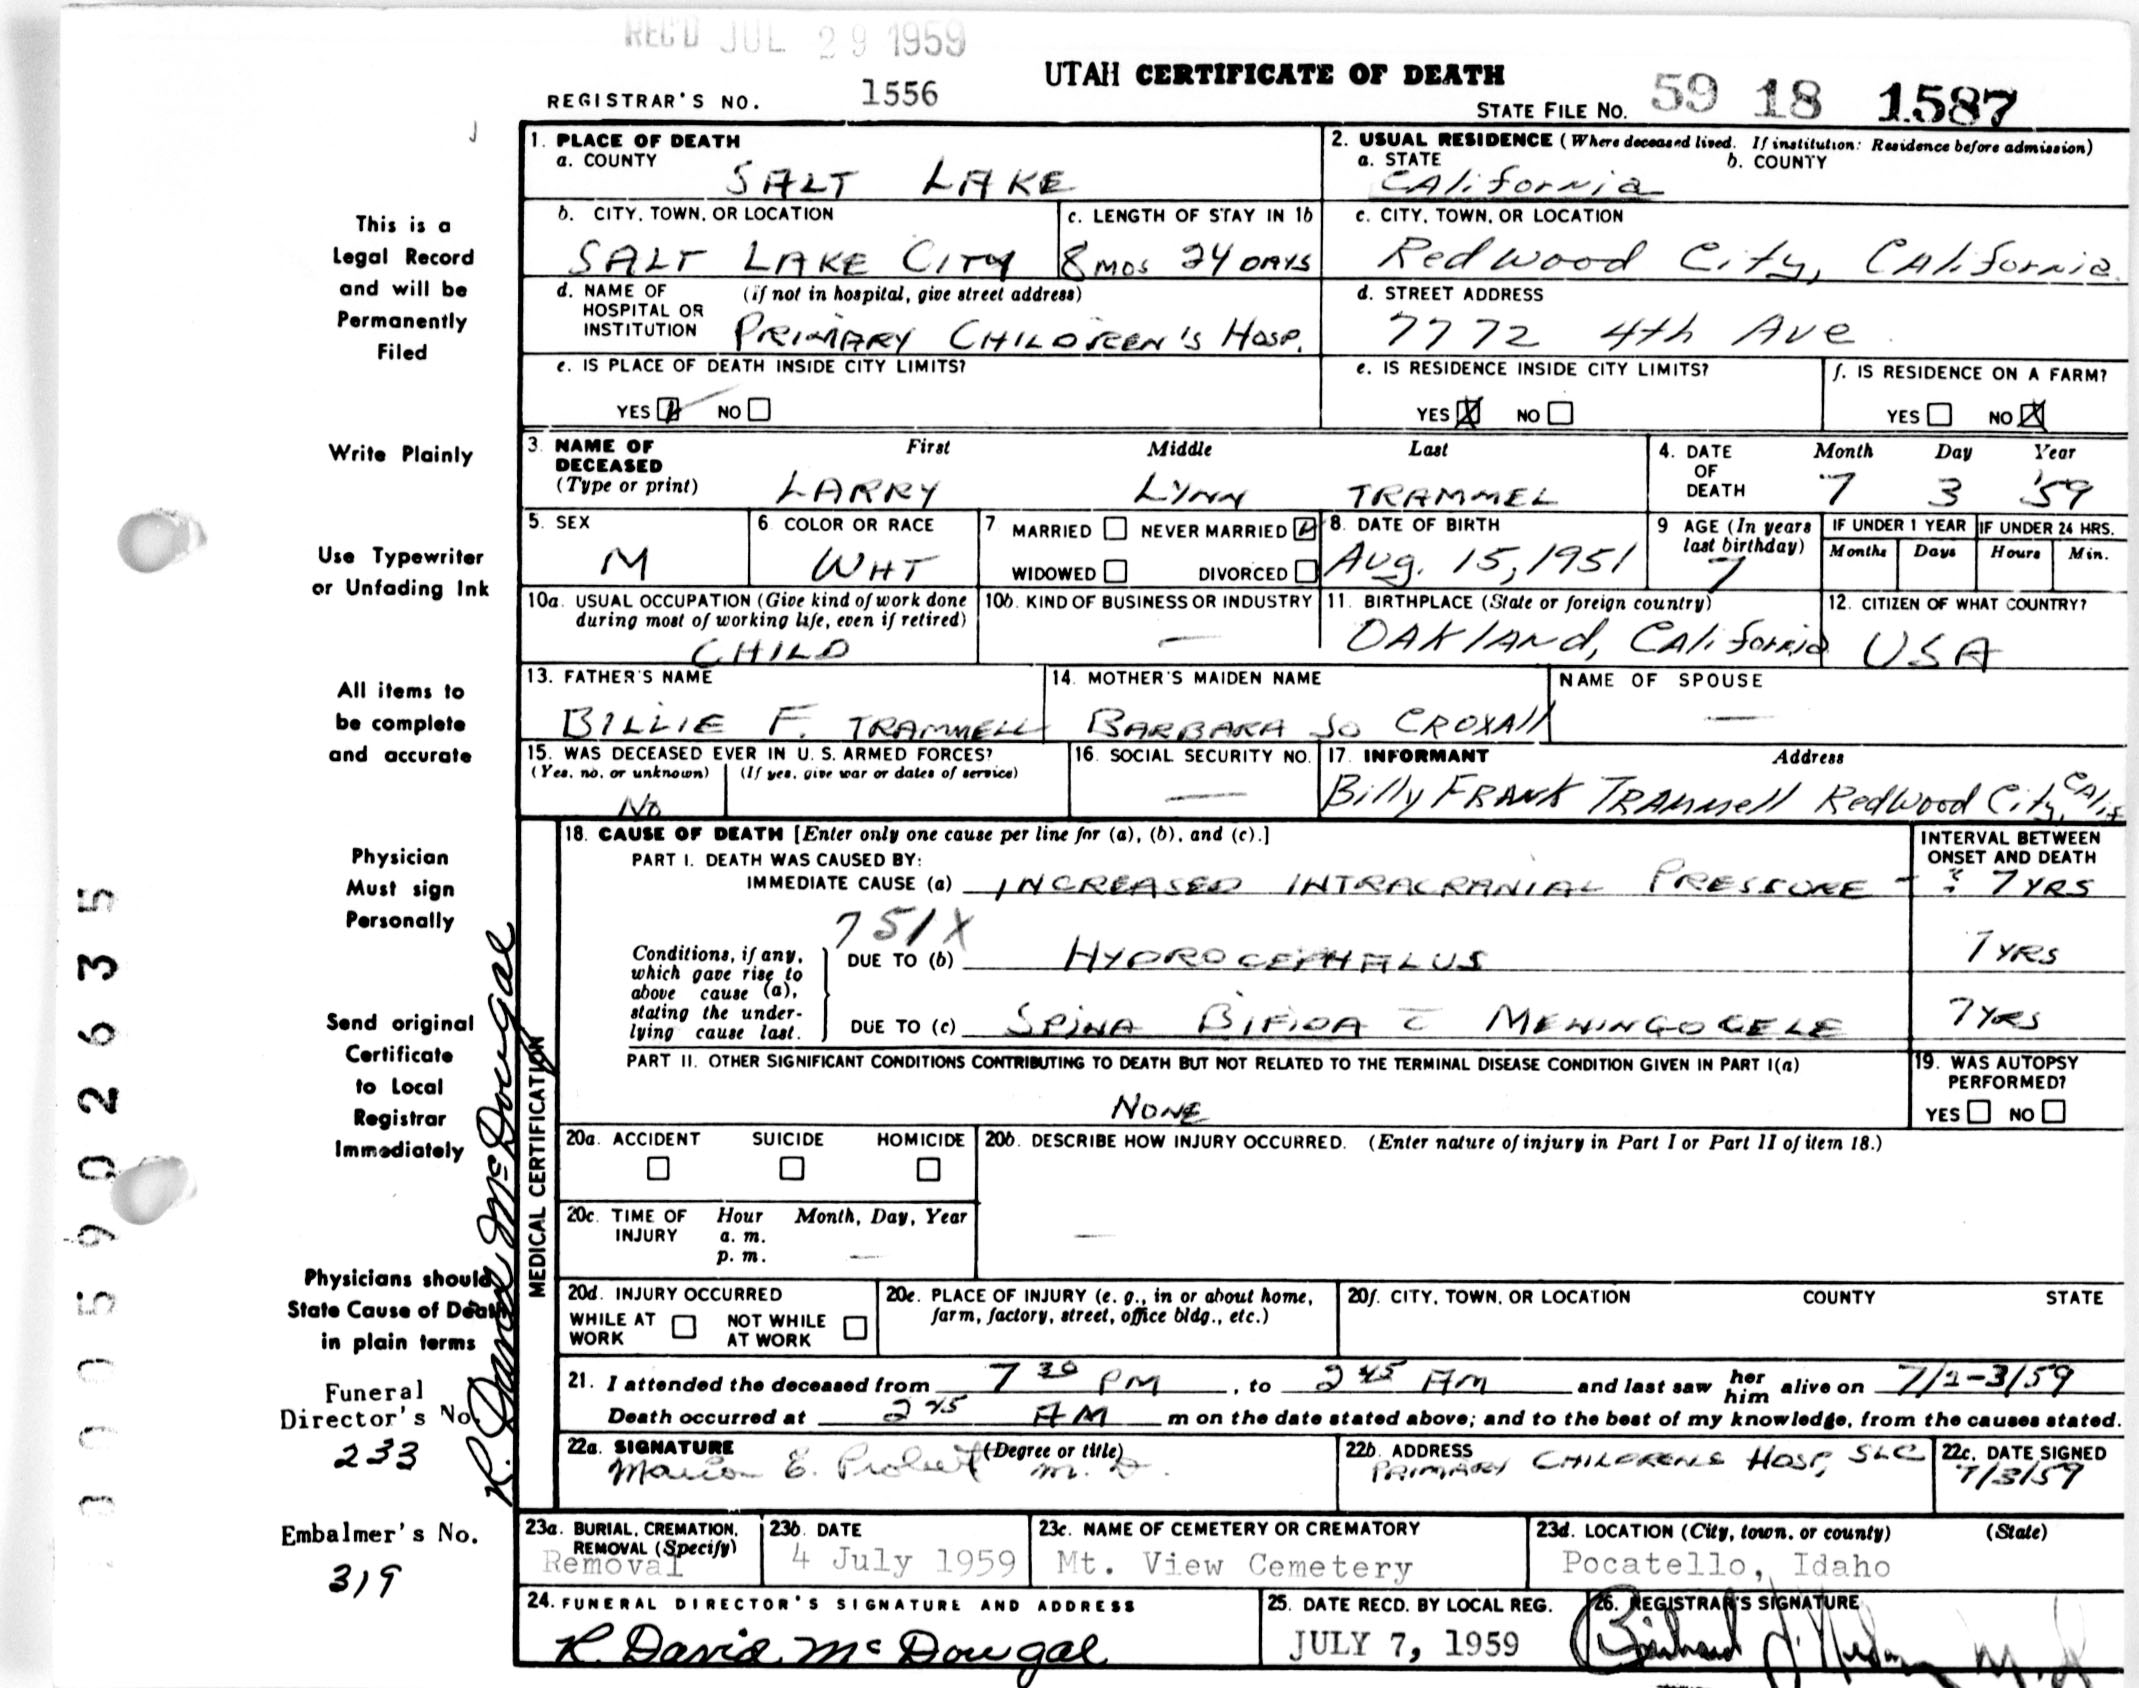 REC'D JUL 29 1959
UTAH CERTIFICATE OF DEATH
REGISTRAR'S NO. 1556
STATE FILE NO. 59 18 1587
1. PLACE OF DEATH
a. COUNTY
SALT LAKE
2. USUAL RESIDENCE (Where deceased lived. If institution: Residence before admission)
a. STATE b. COUNTY
California
b. CITY, TOWN, OR LOCATION
SALT LAKE CITY
c. LENGTH OF STAY IN 1b
8 MOS 24 DAYS
c. CITY, TOWN, OR LOCATION
Redwood City, California
d. NAME OF HOSPITAL OR INSTITUTION (if not in hospital, give street address)
PRIMARY CHILDREN'S HOSP.
d. STREET ADDRESS
7772 4th Ave
e. IS PLACE OF DEATH INSIDE CITY LIMITS?
YES NO
e. IS RESIDENCE INSIDE CITY LIMITS?
YES X NO
f. IS RESIDENCE ON A FARM?
YES NO X
3. NAME OF DECEASED (Type or print)
First Middle Last
LARRY LYNN TRAMMEL
4. DATE OF DEATH
Month Day Year
7 3 '59
5. SEX
M
6 COLOR OR RACE
WHT
7 MARRIED NEVER MARRIED
WIDOWED DIVORCED
8. DATE OF BIRTH
Aug. 15, 1951
9 AGE (In years last birthday)
7
IF UNDER 1 YEAR
Months Days
IF UNDER 24 HRS.
Hours Min.
10a. USUAL OCCUPATION (Give kind of work done during most of working life, even if retired)
CHILD
10b. KIND OF BUSINESS OR INDUSTRY
—
11. BIRTHPLACE (State or foreign country)
OAKLAND, California
12. CITIZEN OF WHAT COUNTRY?
USA
13. FATHER'S NAME
BILLIE F. TRAMMELL
14. MOTHER'S MAIDEN NAME
BARBARA JO CROXALL
NAME OF SPOUSE
—
15. WAS DECEASED EVER IN U. S. ARMED FORCES?
(Yes, no, or unknown) (If yes, give war or dates of service)
No
16. SOCIAL SECURITY NO.
—
17. INFORMANT Address
Billy FRANK TRAMMELL Redwood City, Calif
MEDICAL CERTIFICATION
18. CAUSE OF DEATH [Enter only one cause per line for (a), (b), and (c).]
INTERVAL BETWEEN ONSET AND DEATH
PART I. DEATH WAS CAUSED BY:
IMMEDIATE CAUSE (a) INCREASED INTRACRANIAL PRESSURE - ? 7 YRS
751X
Conditions, if any, which gave rise to above cause (a), stating the underlying cause last.
DUE TO (b) HYDROCEPHALUS 7 YRS
DUE TO (c) SPINA BIFIDA c̄ MENINGOCELE 7 YRS
PART II. OTHER SIGNIFICANT CONDITIONS CONTRIBUTING TO DEATH BUT NOT RELATED TO THE TERMINAL DISEASE CONDITION GIVEN IN PART I(a)
NONE
19. WAS AUTOPSY PERFORMED?
YES NO
20a. ACCIDENT SUICIDE HOMICIDE
20b. DESCRIBE HOW INJURY OCCURRED. (Enter nature of injury in Part I or Part II of item 18.)
—
20c. TIME OF INJURY
Hour Month, Day, Year
a. m.
p. m. —
20d. INJURY OCCURRED
WHILE AT WORK NOT WHILE AT WORK
20e. PLACE OF INJURY (e. g., in or about home, farm, factory, street, office bldg., etc.)
20f. CITY, TOWN, OR LOCATION COUNTY STATE
21. I attended the deceased from 7 30 PM, to 2 45 AM and last saw her him alive on 7/2-3/59
Death occurred at 2 45 AM m on the date stated above; and to the best of my knowledge, from the causes stated.
22a. SIGNATURE (Degree or title)
Marion E. Probert M. D.
22b. ADDRESS
PRIMARY CHILDRENS HOSP, SLC
22c. DATE SIGNED
7/3/59
23a. BURIAL, CREMATION, REMOVAL (Specify)
Removal
23b. DATE
4 July 1959
23c. NAME OF CEMETERY OR CREMATORY
Mt. View Cemetery
23d. LOCATION (City, town, or county) (State)
Pocatello, Idaho
24. FUNERAL DIRECTOR'S SIGNATURE AND ADDRESS
R. David McDougal
25. DATE RECD. BY LOCAL REG.
JULY 7, 1959
26. REGISTRAR'S SIGNATURE
This is a
Legal Record
and will be
Permanently
Filed
Write Plainly
Use Typewriter
or Unfading Ink
All items to
be complete
and accurate
Physician
Must sign
Personally
Send original
Certificate
to Local
Registrar
Immediately
Physicians should
State Cause of Death
in plain terms
Funeral
Director's No.
233
Embalmer's No.
319
R. David McDougal